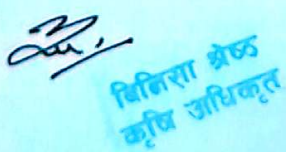 बिनिसा श्रेष्ठ
कृषि अधिकृत